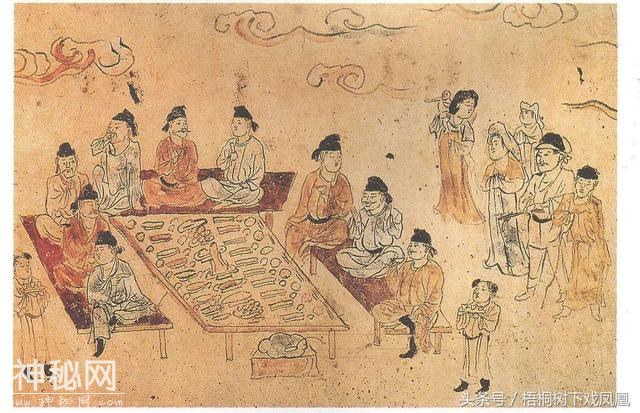 神秘网
头条号／梧桐树下戏凤凰